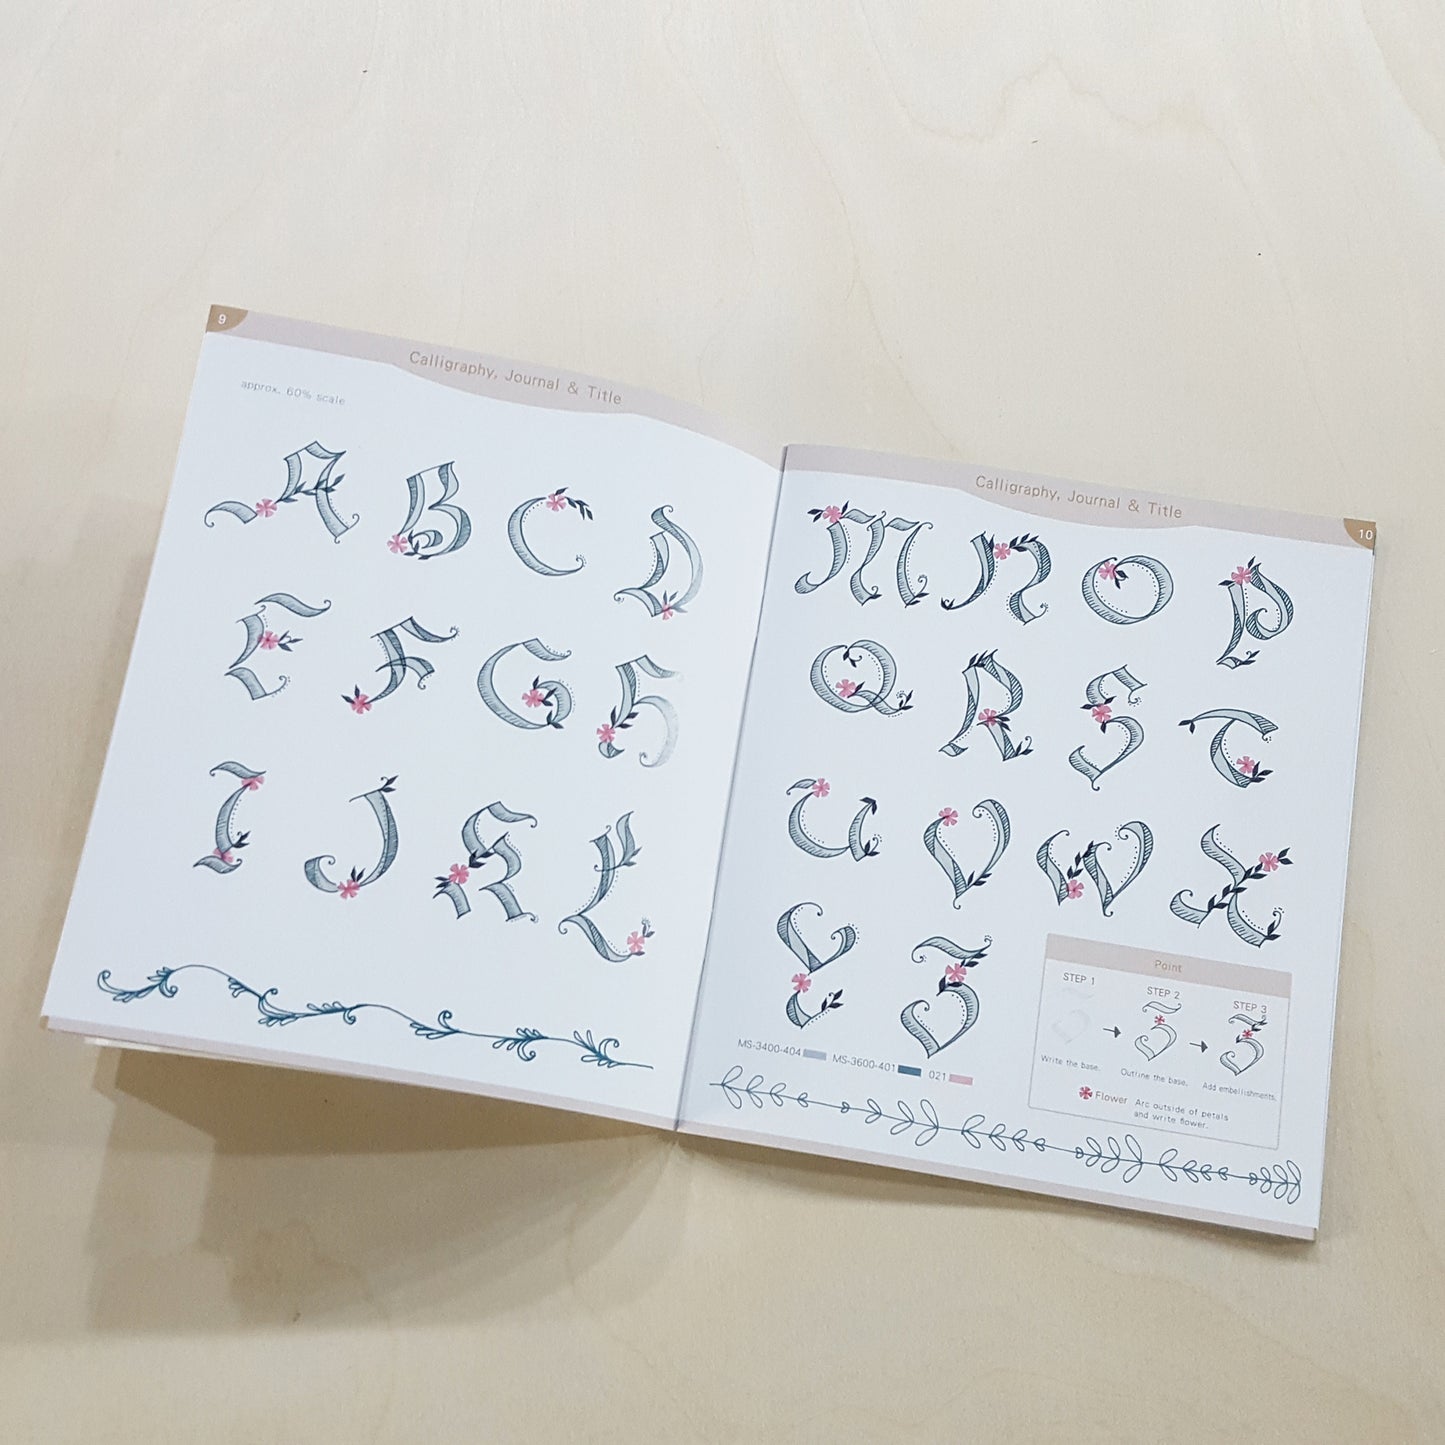 9
Calligraphy, Journal & Title
approx. 60% scale
A B C D
E F G H
I J K L
Calligraphy, Journal & Title
10
M N O P
Q R S T
U V W X
Y Z
MS-3400-404 MS-3600-401 021
Point
STEP 1
STEP 2
STEP 3
Write the base.
Outline the base.
Add embellishments.
Flower Arc outside of petals
and write flower.